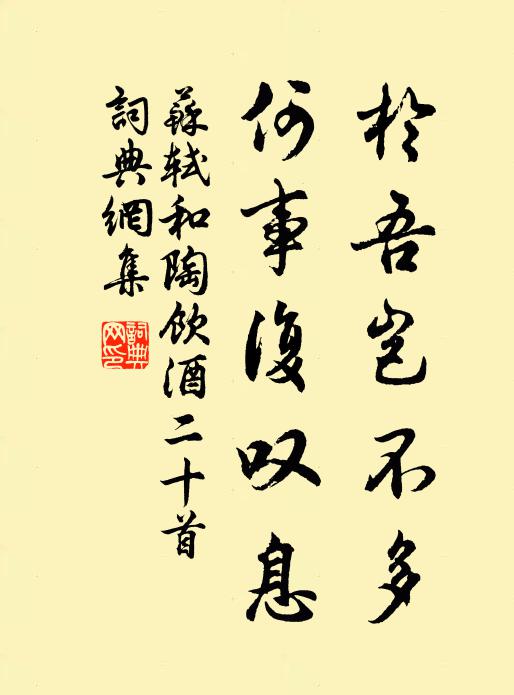 於吾豈不多
何事復叹息
蘇軾和陶飲酒二十首
詞典網集
詞典網印